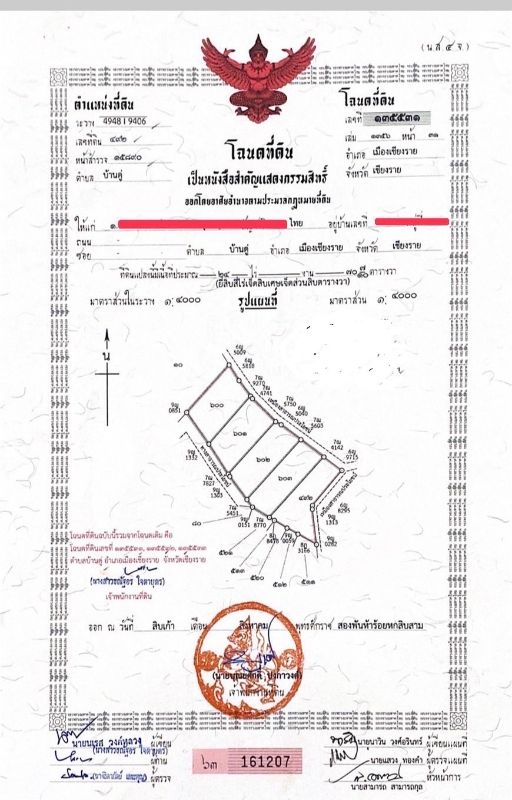 (น.ส. ๔ จ.)
ตำแหน่งที่ดิน
ระวาง 4948 I 9406
เลขที่ดิน ๔๙๒
หน้าสำรวจ ๑๕๘๙๐
ตำบล บ้านดู่
โฉนดที่ดิน
เลขที่ ๑๓๕๕๓๑
เล่ม ๑๓๕๖ หน้า ๓๑
อำเภอ เมืองเชียงราย
จังหวัด เชียงราย
โฉนดที่ดิน
เป็นหนังสือสำคัญแสดงกรรมสิทธิ์
ออกโดยอาศัยอำนาจตามประมวลกฎหมายที่ดิน
ให้แก่ ๑. ไทย อยู่บ้านเลขที่
ถนน
ซอย - ตำบล บ้านดู่ อำเภอ เมืองเชียงราย จังหวัด เชียงราย
ที่ดินแปลงนี้มีเนื้อที่ประมาณ ๒๔ ไร่ - งาน ๗๐ ตารางวา
(ยี่สิบสี่ไร่เจ็ดสิบเศษเจ็ดส่วนสิบตารางวา)
มาตราส่วนในระวาง ๑: ๔๐๐๐ รูปแผนที่ มาตราส่วน ๑: ๔๐๐๐
น
๑๐
6ญ 5009
6ญ 5818
7ญ 9270
7ญ 4741
7ญ 5750
6ญ 5040
7ญ 5605
7ญ 4142
6ญ 9715
9ญ 0851
๖๐๐
๖๐๑
๖๐๒
๖๐๓
๔๙๒
9ญ 1332
7ญ 7827
9ญ 1303
7ญ 5451
9ญ 0151
7ญ 8770
8ฎ 8478
9ญ 0059
8ฎ 3166
9ญ 0282
9ญ 1313
6ญ 8295
ทางสาธารณประโยชน์
เหมืองสาธารณประโยชน์
เหมืองสาธารณประโยชน์
๘๐
๕๒๑
๕๒๐
๕๑๒
๕๑๑
โฉนดที่ดินฉบับนี้รวมจากโฉนดเดิม คือ
โฉนดที่ดินเลขที่ ๑๓๕๕๓๑, ๑๓๕๕๓๒, ๑๓๕๕๓๓
ตำบลบ้านดู่ อำเภอเมืองเชียงราย จังหวัดเชียงราย
เจ้าพนักงานที่ดิน
ออก ณ วันที่ สิบเก้า เดือน สิงหาคม พุทธศักราช สองพันห้าร้อยหกสิบสาม
เจ้าพนักงานที่ดิน
ผู้เขียน
ผู้ทาน
ผู้ตรวจ
๖๓ 161207
นายนาวิน วงศ์อรินทร์ ผู้เขียนแผนที่
นายแสวง ทองคำ ผู้ตรวจแผนที่
หัวหน้าการ
นายสามารถ สามารถกุล